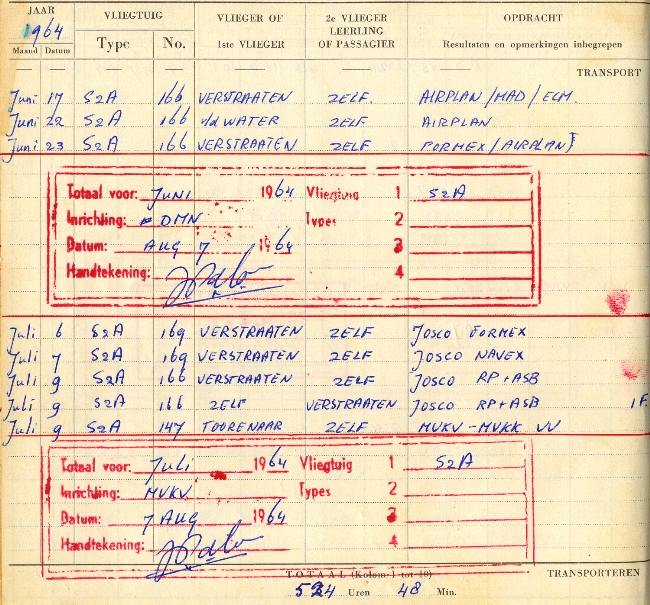 JAAR VLIEGTUIG VLIEGER OF 2e VLIEGER OPDRACHT
1964 LEERLING
Maand Datum Type No. 1ste VLIEGER OF PASSAGIER Resultaten en opmerkingen inbegrepen
TRANSPORT
Juni 17 S2A 166 VERSTRAATEN ZELF. AIRPLAN/MAD/ECM.
Juni 22 S2A 166 v/d WATER ZELF AIRPLAN
Juni 23 S2A 166 VERSTRAATEN ZELF FORMEX/AIRPLAN
Totaal voor: JUNI 1964 Vliegtuig 1 S2A
Inrichting: DMN Types 2
Datum: AUG 7 1964 3
Handtekening: 4
Juli 6 S2A 169 VERSTRAATEN ZELF JOSCO FORMEX
Juli 7 S2A 169 VERSTRAATEN ZELF JOSCO NAVEX
Juli 9 S2A 166 VERSTRAATEN ZELF JOSCO RP+ASB
Juli 9 S2A 166 ZELF VERSTRAATEN JOSCO RP+ASB 1F.
Juli 9 S2A 147 TOORENAAR ZELF MVKV-MVKK VV
Totaal voor: Juli 1964 Vliegtuig 1 S2A
Inrichting: MVKV Types 2
Datum: 7 AUG 1964 3
Handtekening: 4
TOTAAL (Kolom 1 tot 10) TRANSPORTEREN
524 Uren 48 Min.